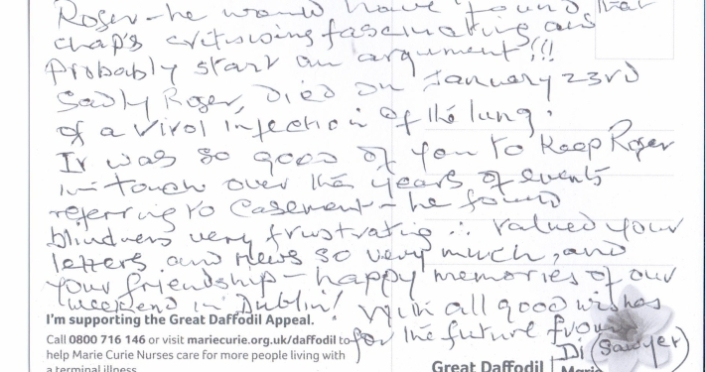 Roger - he would have found that
chap's critiscing fascinating and
probably start an argument!!!
Sadly Roger, died on January 23rd
of a viral infection of the lung.
It was so good of you to keep Roger
in-touch over the years of events
referring to Casement - he found
blindness very frustrating ∴ valued your
letters and news so very much, and
your friendship - happy memories of our
weekend in Dublin! With all good wishes
for the future from
Di (Sawyer)
I'm supporting the Great Daffodil Appeal.
Call 0800 716 146 or visit mariecurie.org.uk/daffodil to
help Marie Curie Nurses care for more people living with
a terminal illness
Great Daffodil
Marie